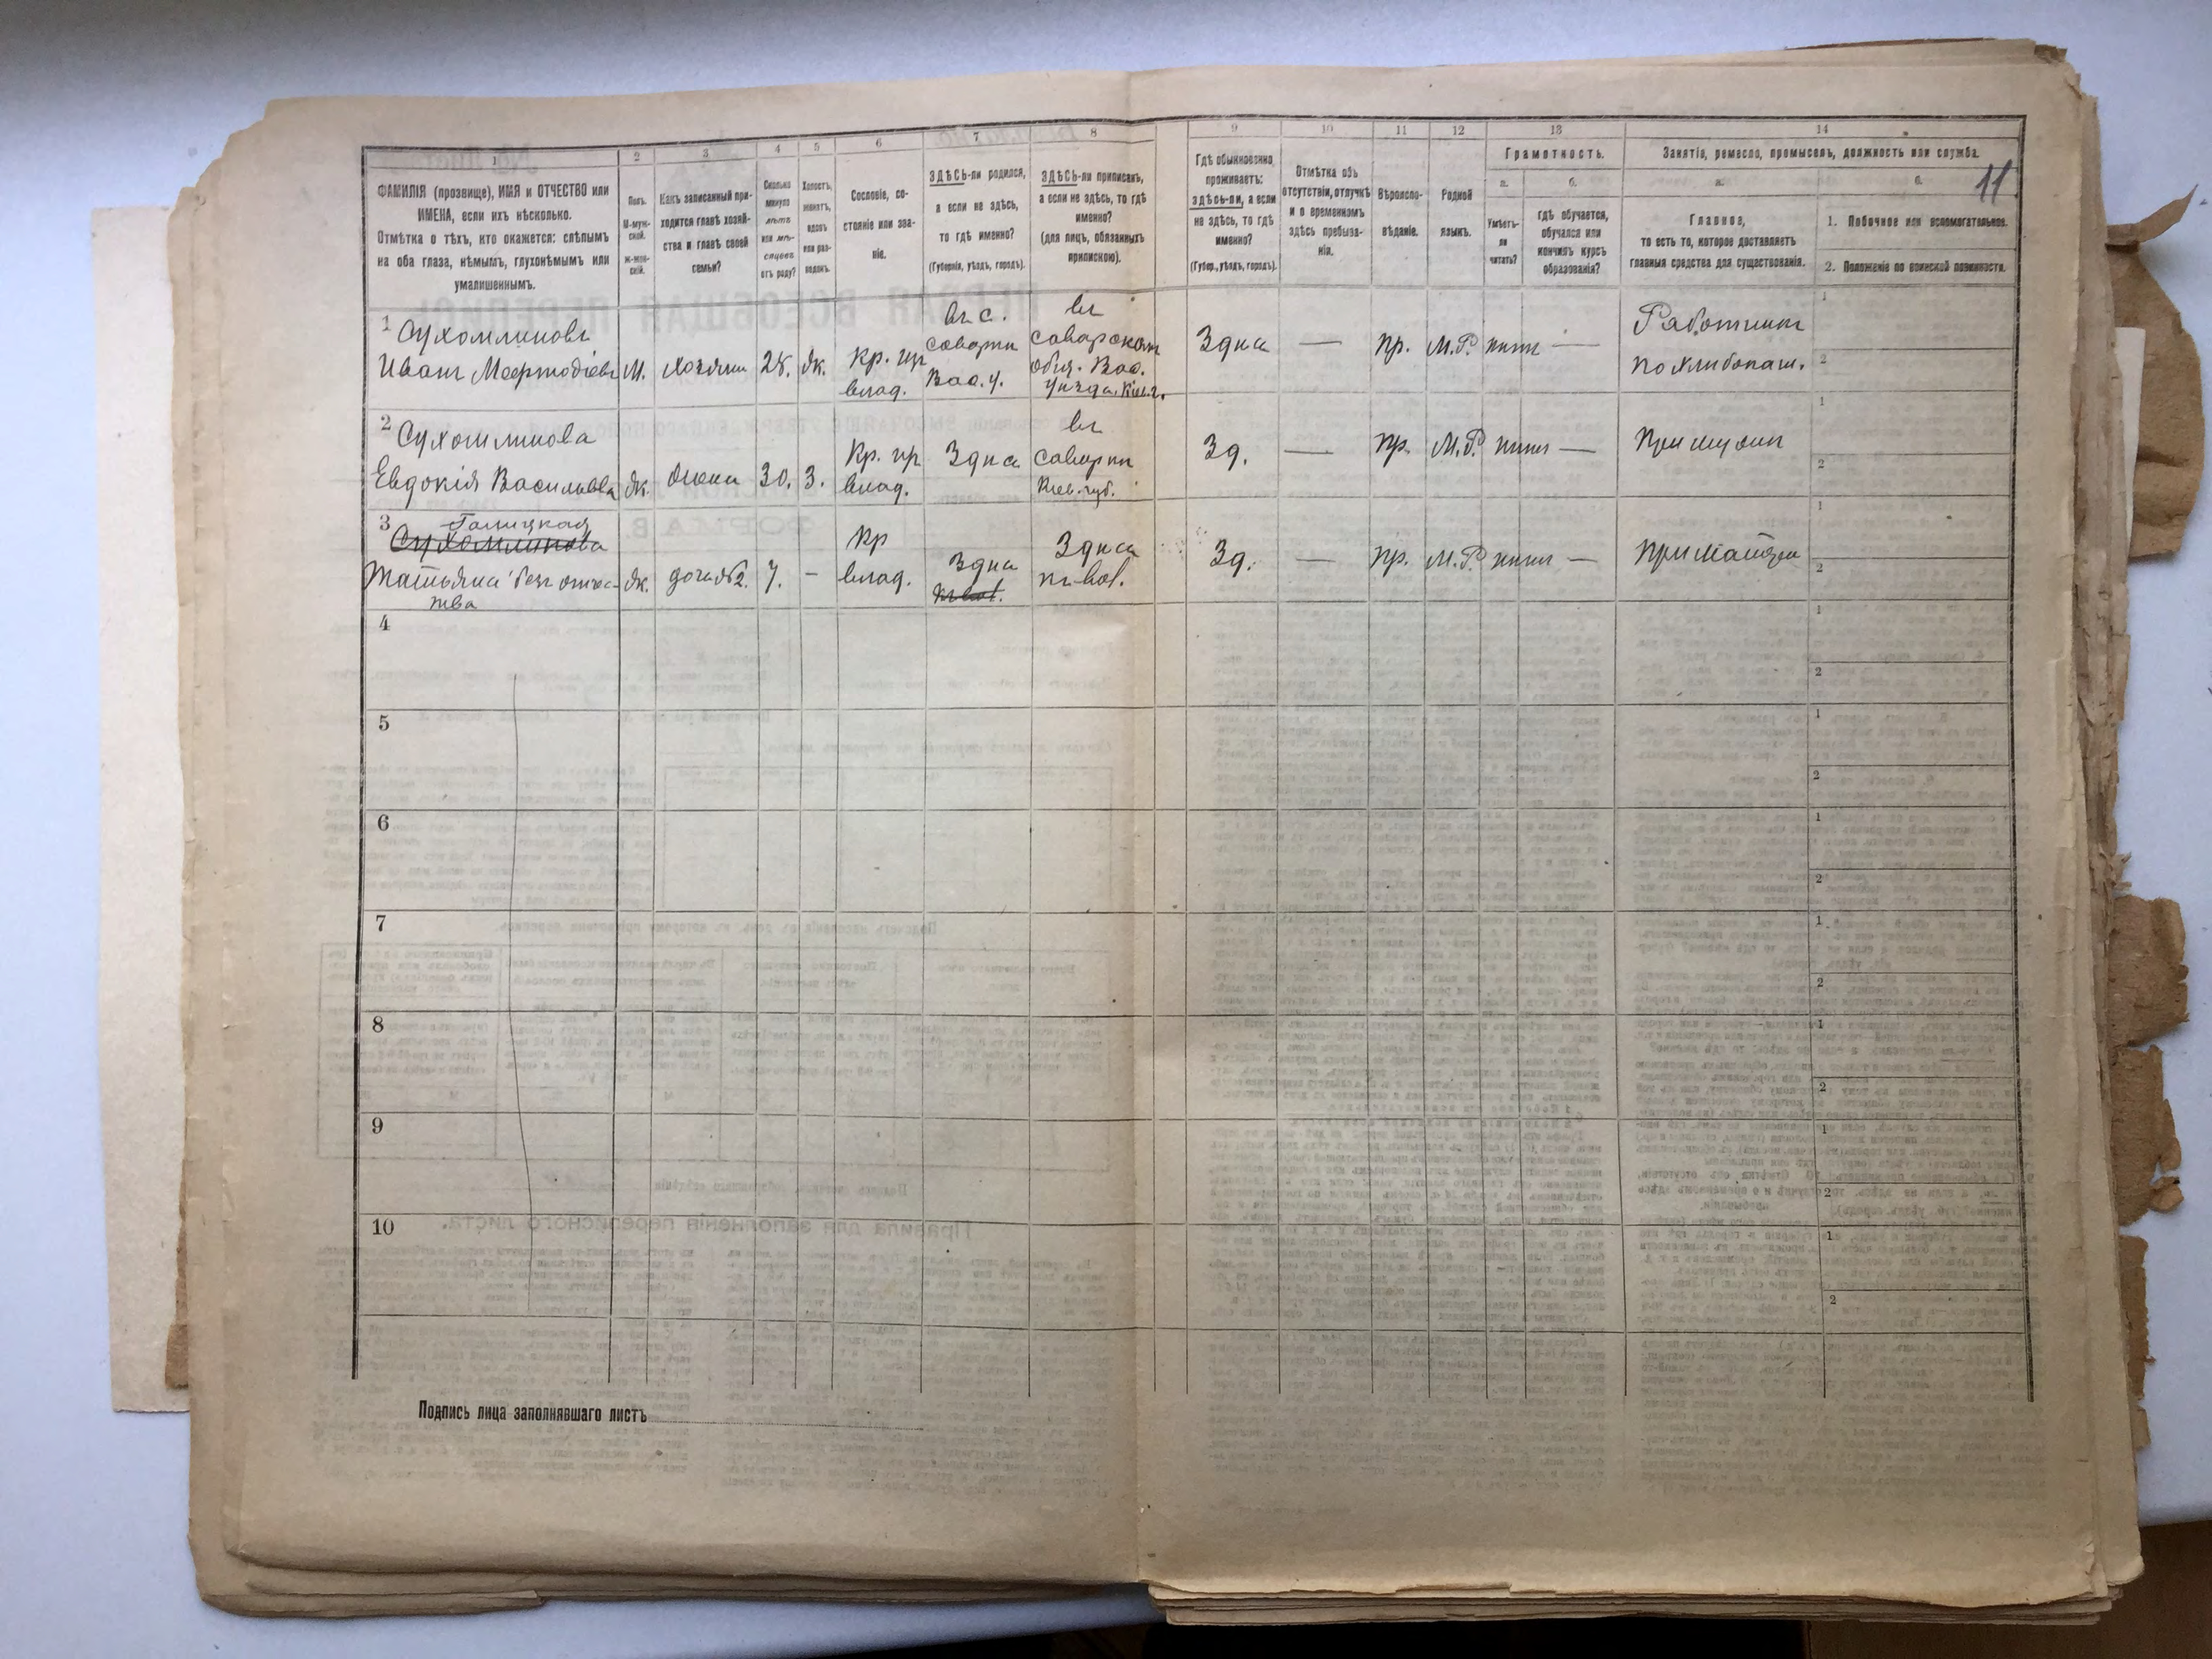 11
1
2
3
4
5
6
7
8
9
10
11
12
13
14
ФАМИЛІЯ (прозвище), ИМЯ и ОТЧЕСТВО или
ИМЕНА, если ихъ нѣсколько.
Отмѣтка о тѣхъ, кто окажется: слѣпымъ
на оба глаза, нѣмымъ, глухонѣмымъ или
умалишеннымъ.
Полъ.
М-муж-
ской.
Ж-жен-
скій.
Какъ записанный при-
ходится главѣ хозяй-
ства и главѣ своей
семьи?
Сколько
минуло
лѣтъ
или мѣ-
сяцевъ
отъ роду?
Холостъ,
женатъ,
вдовъ
или раз-
веденъ.
Сословіе, со-
стояніе или зва-
ніе.
ЗДѢСЬ-ли родился,
а если не здѣсь,
то гдѣ именно?
(Губернія, уѣздъ, городъ).
ЗДѢСЬ-ли приписанъ,
а если не здѣсь, то гдѣ
именно?
(для лицъ, обязанныхъ
припискою).
Гдѣ обыкновенно
проживаетъ:
здѣсь-ли, а если
не здѣсь, то гдѣ
именно?
(Губер., уѣздъ, городъ).
Отмѣтка объ
отсутствіи, отлучкѣ
и о временномъ
здѣсь пребыва-
ніи.
Вѣроиспо-
вѣданіе.
Родной
языкъ.
Грамотность.
а.
б.
Умѣетъ-
ли
читать?
гдѣ обучается,
обучался или
кончилъ курсъ
образованія?
Занятіе, ремесло, промыселъ, должность или служба.
а.
б.
Главное,
то есть то, которое доставляетъ
главныя средства для существованія.
1. Побочное или вспомогательное.
2. Положеніе по воинской повинности.
1 Сухомлиновъ
Иванъ
М.
хозяин
28.
жк.
кр. из
влад.
въ с.
саварки
Вас. у.
въ
саварском
общ. Вас.
уезда, Киев. г.
Здиа
—
пр.
М.Р.
нит
—
Работник
по хлибопаш.
1
2
2 Сухомлинова
Евдокія Васильева
жк.
жена
30.
3.
Кр. из
влад.
Здиа
въ
саварки
Киев. губ.
Зд.
—
пр.
М.Р.
нит
—
При мужи
1
2
3 Галицкая
Сухомлинова
Татьяна безъ отчес-
тва
жк.
дочь № 2.
7.
-
кр
влад.
Здиа
Здиса
Зд.
—
пр.
М.Р.
нит
—
при матери
1
2
4
1
2
5
1
2
6
1
2
7
1
2
8
1
2
9
1
2
10
1
2
2
Подпись лица заполнявшаго листъ